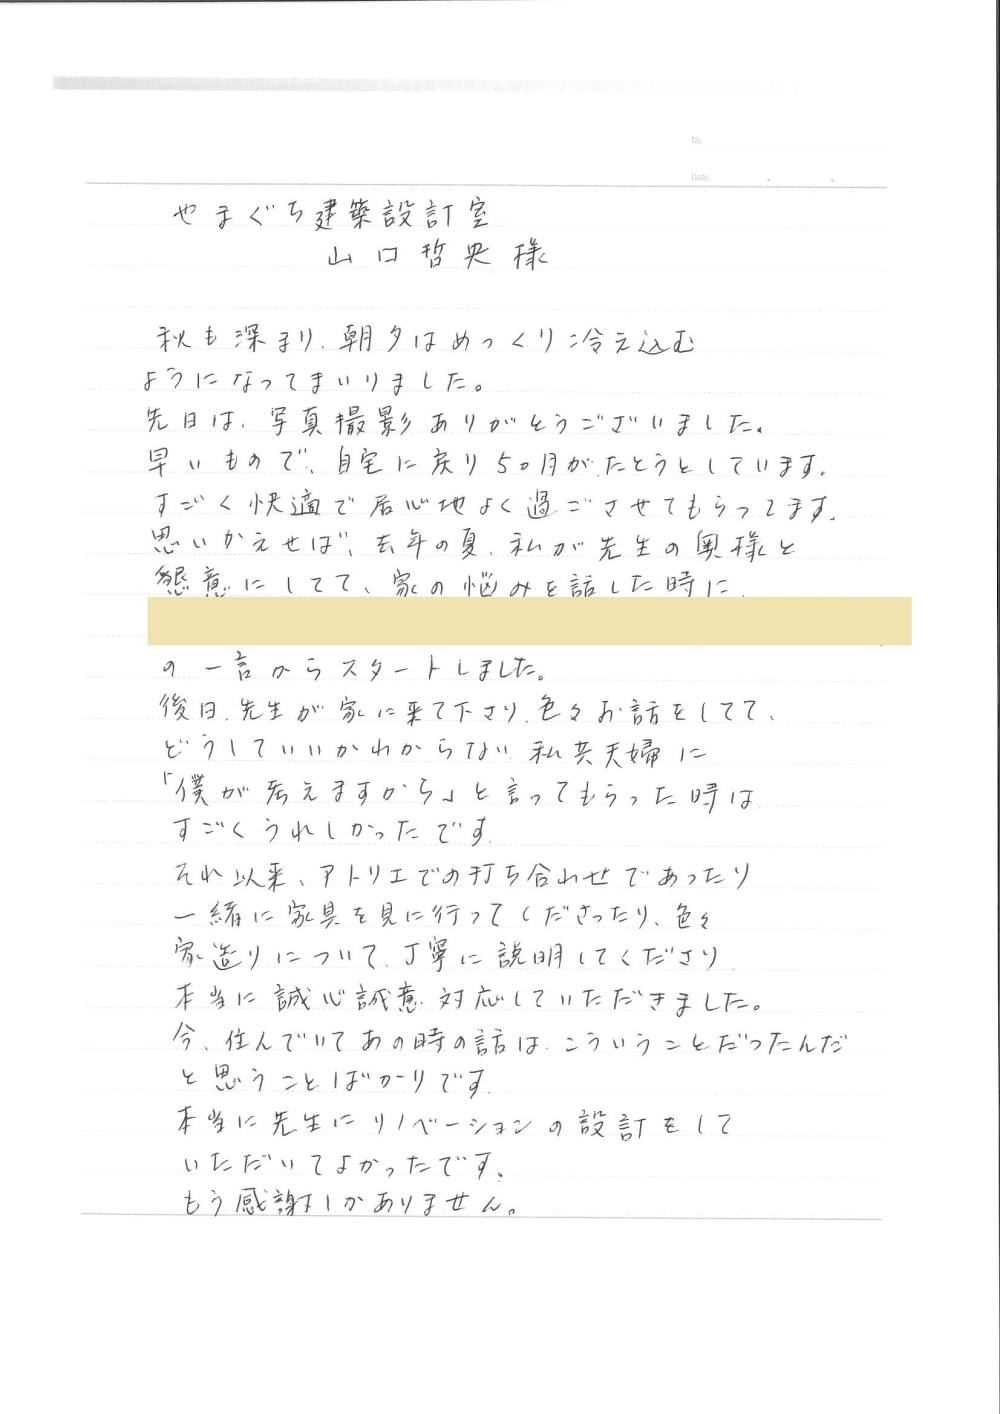 No.
Date
やまぐち建築設計室
山口哲央様
秋も深まり、朝夕はめっくり冷え込む
ようになってまいりました。
先日は、写真撮影ありがとうございました。
早いもので、自宅に戻り5ヶ月がたとうとしています。
すごく快適で居心地よく過ごさせてもらってます。
思いかえせば、去年の夏、私が先生の奥様と
懇意にしてて、家の悩みを話した時に、
の一言からスタートしました。
後日、先生が家に来て下さり、色々お話をしてて、
どうしていいかわからない私共夫婦に
「僕が考えますから」と言ってもらった時は
すごくうれしかったです。
それ以来、アトリエでの打ち合わせであったり
一緒に家具を見に行ってくださったり、色々
家造りについて、丁寧に説明してくださり、
本当に誠心誠意対応していただきました。
今、住んでいてあの時の話は、こういうことだったんだ
と思うことばかりです。
本当に先生にリノベーションの設計をして
いただいてよかったです。
もう感謝しかありません。